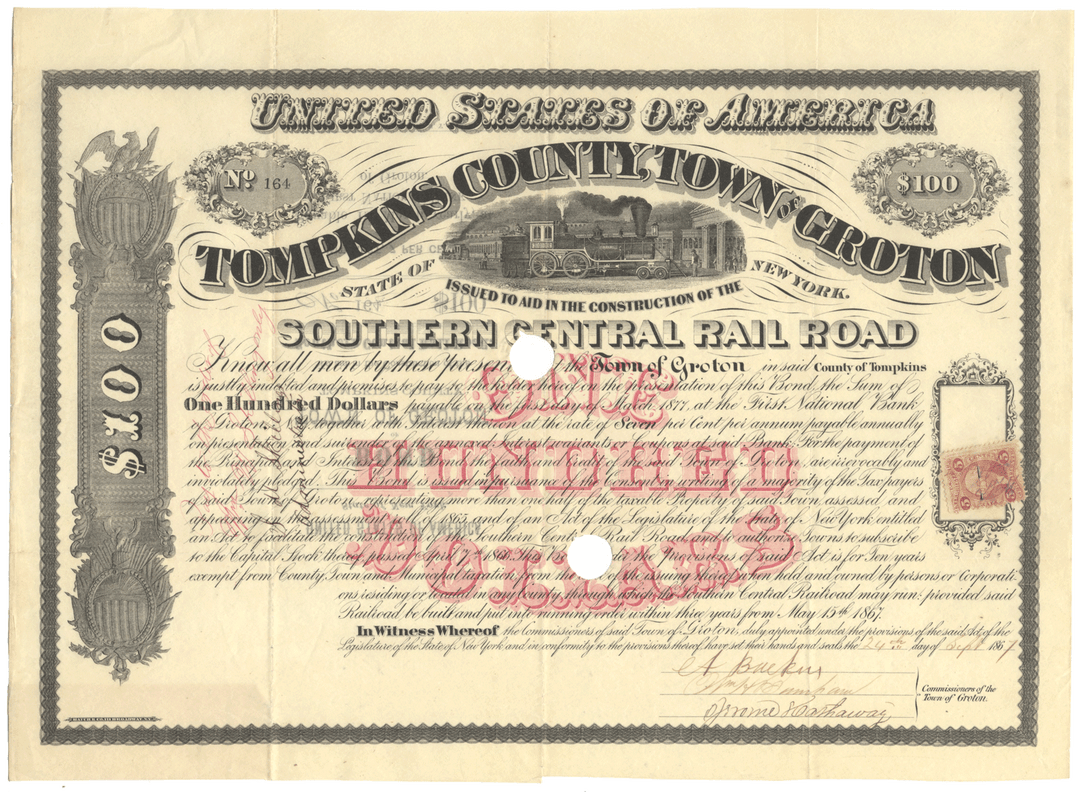 UNITED STATES OF AMERICA
No 164
$100
TOMPKINS COUNTY, TOWN OF GROTON
STATE OF NEW YORK.
ISSUED TO AID IN THE CONSTRUCTION OF THE
SOUTHERN CENTRAL RAIL ROAD
$100
ONE
HUNDRED
DOLLARS
Know all men by these presents the Town of Groton in said County of Tompkins
is justly indebted and promises to pay to the holder hereof on the presentation of this Bond the Sum of
One Hundred Dollars payable on the first day of March 1877, at the First National Bank
of Groton, N.Y. together with interest thereon at the rate of Seven per Cent per annum payable annually
on presentation and surrender of the annexed Interest warrants or Coupons at said Bank. For the payment of
the Principal and Interest of this Bond the Faith and Credit of the said Town of Groton, are irrevocably and
inviolably pledged. This Bond is issued in pursuance of the Consent in writing of a majority of the Taxpayers
of said Town of Groton, representing more than one half of the taxable Property of said Town assessed and
appearing on the assessment roll of 1865 and of an Act of the Legislature of the State of New York entitled
an Act to facilitate the construction of the Southern Central Rail Road and authorise Towns to subscribe
to the Capital Stock thereof passed April 7th This Bond under the Provisions of said Act is for Ten years
exempt from County Town and Municipal taxation from the of the issuing thereof when held and owned by persons or Corporati-
ons residing or located in any County through which the Southern Central Railroad may run: provided said
Railroad be built and put into running order within three years from May 15th 1867.
In Witness Whereof the Commissioners of said Town of Groton, duly appointed under the provisions of the said Act of the
Legislature of the State of New York and in conformity to the provisions thereof have set their hands and seals the 24th day of Sept 1867
Commissioners of the
Town of Groton.